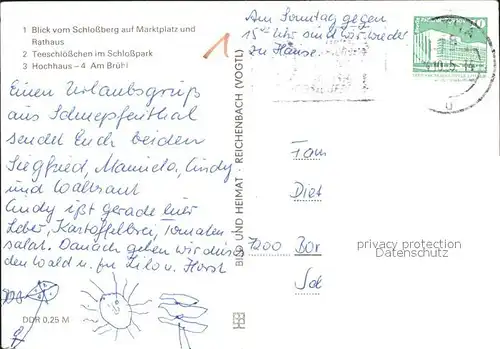 1 Blick vom Schloßberg auf Marktplatz und
Rathaus
2 Teeschlößchen im Schloßpark
3 Hochhaus – 4 Am Brühl
Einen Urlaubsgruß
aus Schnepfenthal
sendet Euch beiden
Siegfried, Manuela, Cindy
und Waltraut
Cindy ißt gerade
Leber, Kartoffelbrei, Tomaten
salat. Danach gehen wir durch
den Wald u. Lilo u. Horst
DDR 0,25 M
BILD UND HEIMAT · REICHENBACH (VOGTL)
Am Sonntag gegen
15 Uhr sind wir wieder
zu Hause.
1
10
Fam
Diet
7200 Bor
privacy protection
Datenschutz